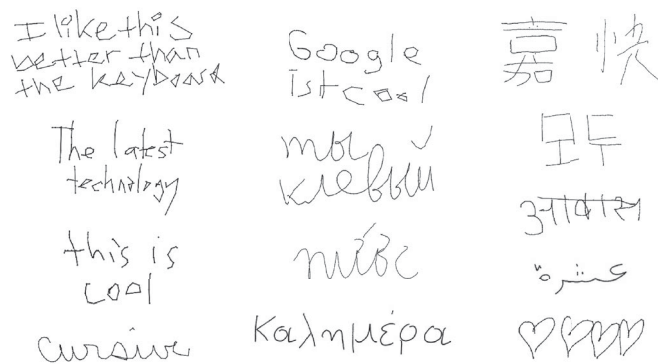 I like this
better than
the keyboard
The latest
technology
this is
cool
cursive
Google
ist cool
ты
клевый
νιώθς
Καλημέρα
嘉 快
모두
आवास
عشرة
♡♡♡♡